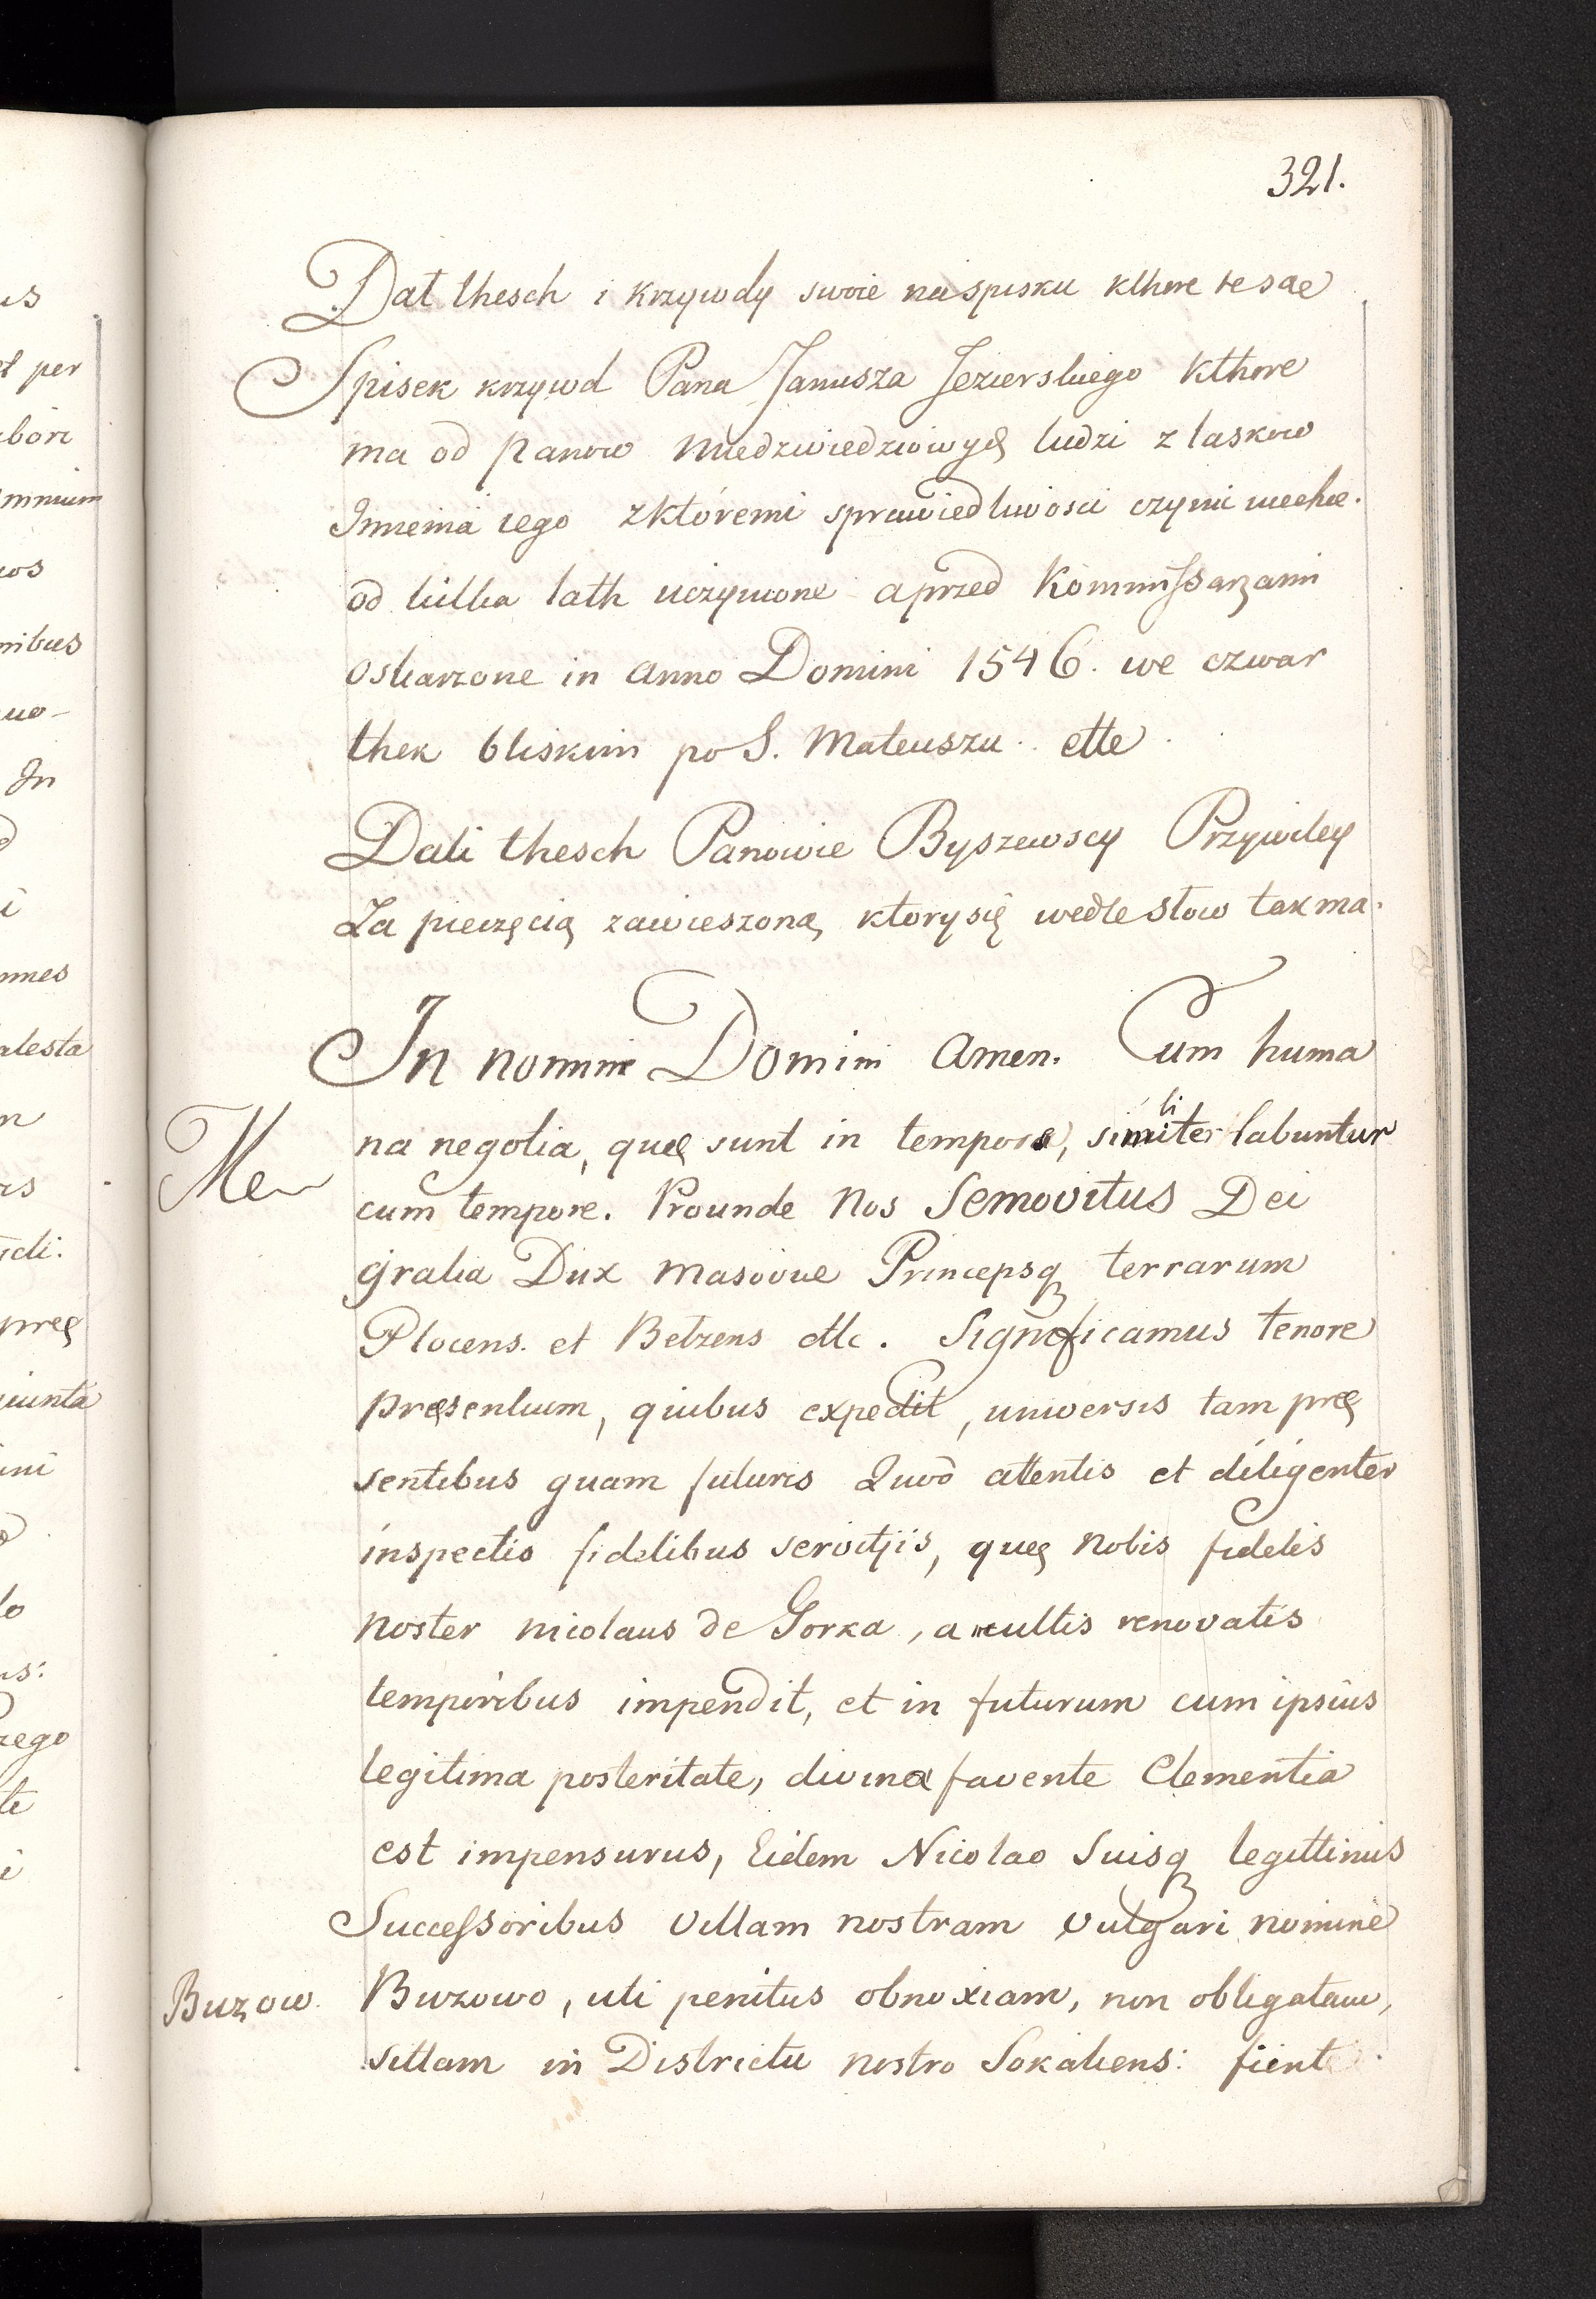 321.
Dał thesch i krzywdy swoie na spisku kthore te sae
Spisek krzywd Pana Janusza Jezierskiego kthore
ma od Panow Miedzwiedziowych ludzi z laskow
Imienia iego zktóremi sprawiedliwosci czynic niechce.
od kilka lath uczynione aprzed Kommissarzami
oskarzone in anno Domini 1546. we czwar
thek bliskim po S. Mateuszu ette
Dali thesch Panowie Byszewscy Przywiley
Za pieczęcią zawieszoną, ktorysię wedle słow tak ma.
In nomine Domini Amen. Cum huma
na negotia, quę sunt in tempore, similiter labuntur
Me
cum tempore. Prounde Nos Semovitus Dei
gratia Dux Masovue Princepsq terrarum
Plocens. et Betzens ettc. Significamus tenore
pręsentium, quibus expedit, universis tam prę
sentibus quam futuris Quod attentis et diligenter
inspectis fidelibus servitijs, quę nobis fidelis
noster Nicolaus de Gorka, a multis renovatis
temporibus impendit, et in futurum cum ipsius
legitima posteritate, divina favente Clementia
est impensurus, Eidem Nicolao Suisq legittimis
Successoribus Villam nostram vulgari nomine
Buzow. Buzowo, uti penitus obnoxiam, non obligatam,
sittam in Districtu nostro Sokaliens: fient
us
et per
bori
mnium
uos
nibus
uo-
In
i
nnes
alesta
n
is
idi:
pręę
iunta
ini
lo
us:
zego
te
i